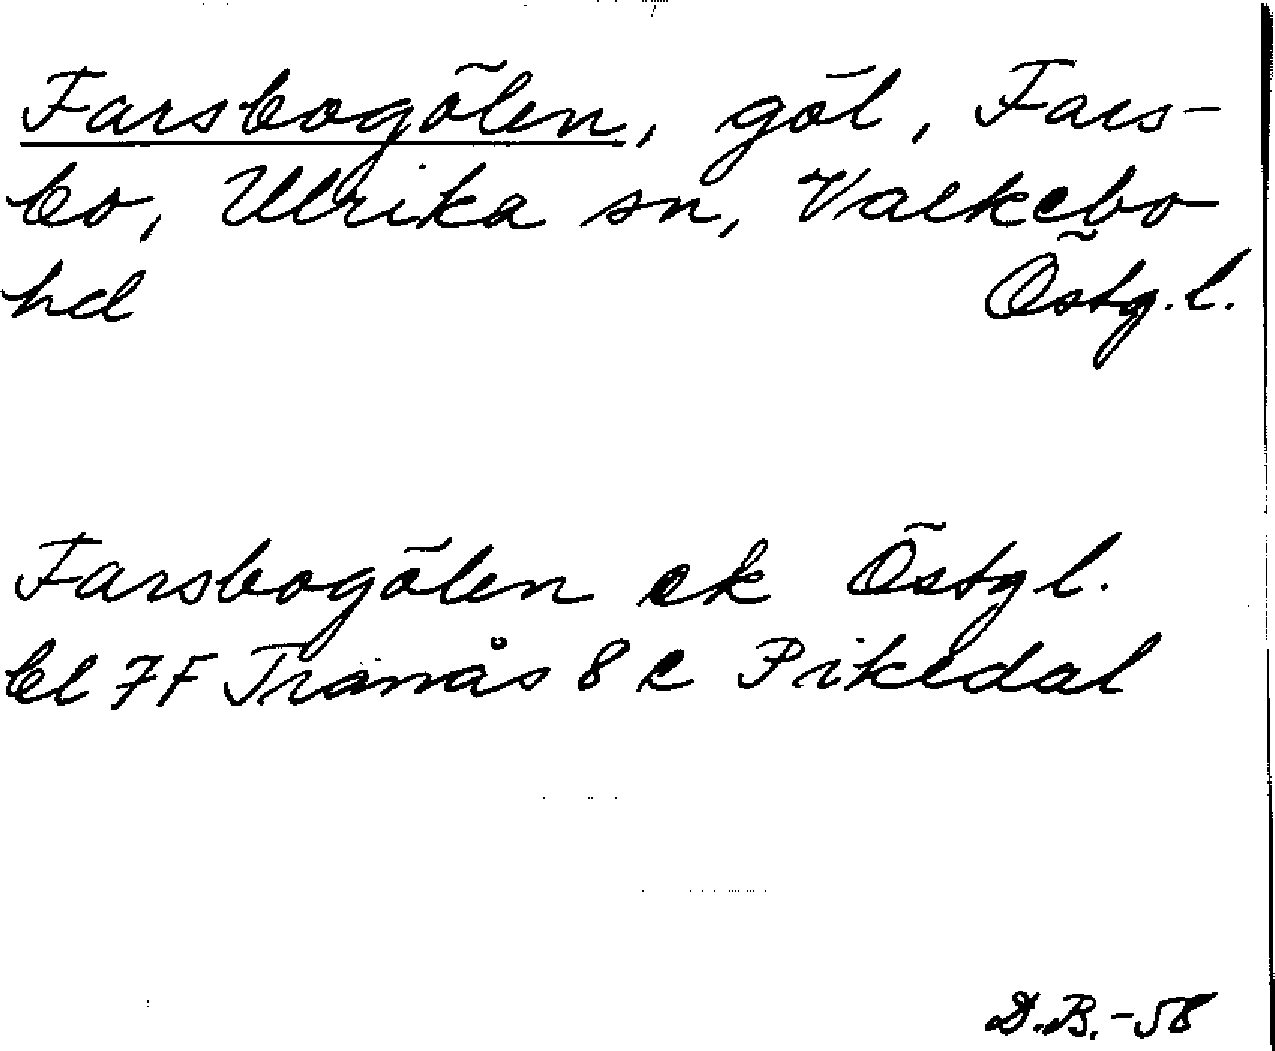 Farsbogölen, göl, Fars-
bo, Ulrika sn, Valkebo
hd Östg.l.
Farsbogölen ek Östgl.
bl 7F Tranås 8 e Rikedal
D.B.-58